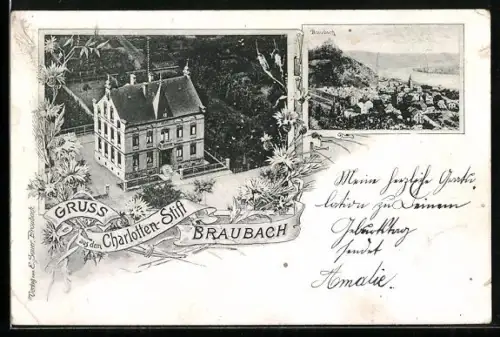 Braubach
GRUSS
aus dem Charlotten-Stift
BRAUBACH
Meine herzliche Gratu
lation zu Deinem
Geburtstag
sendet
Amalie.
Verlag von